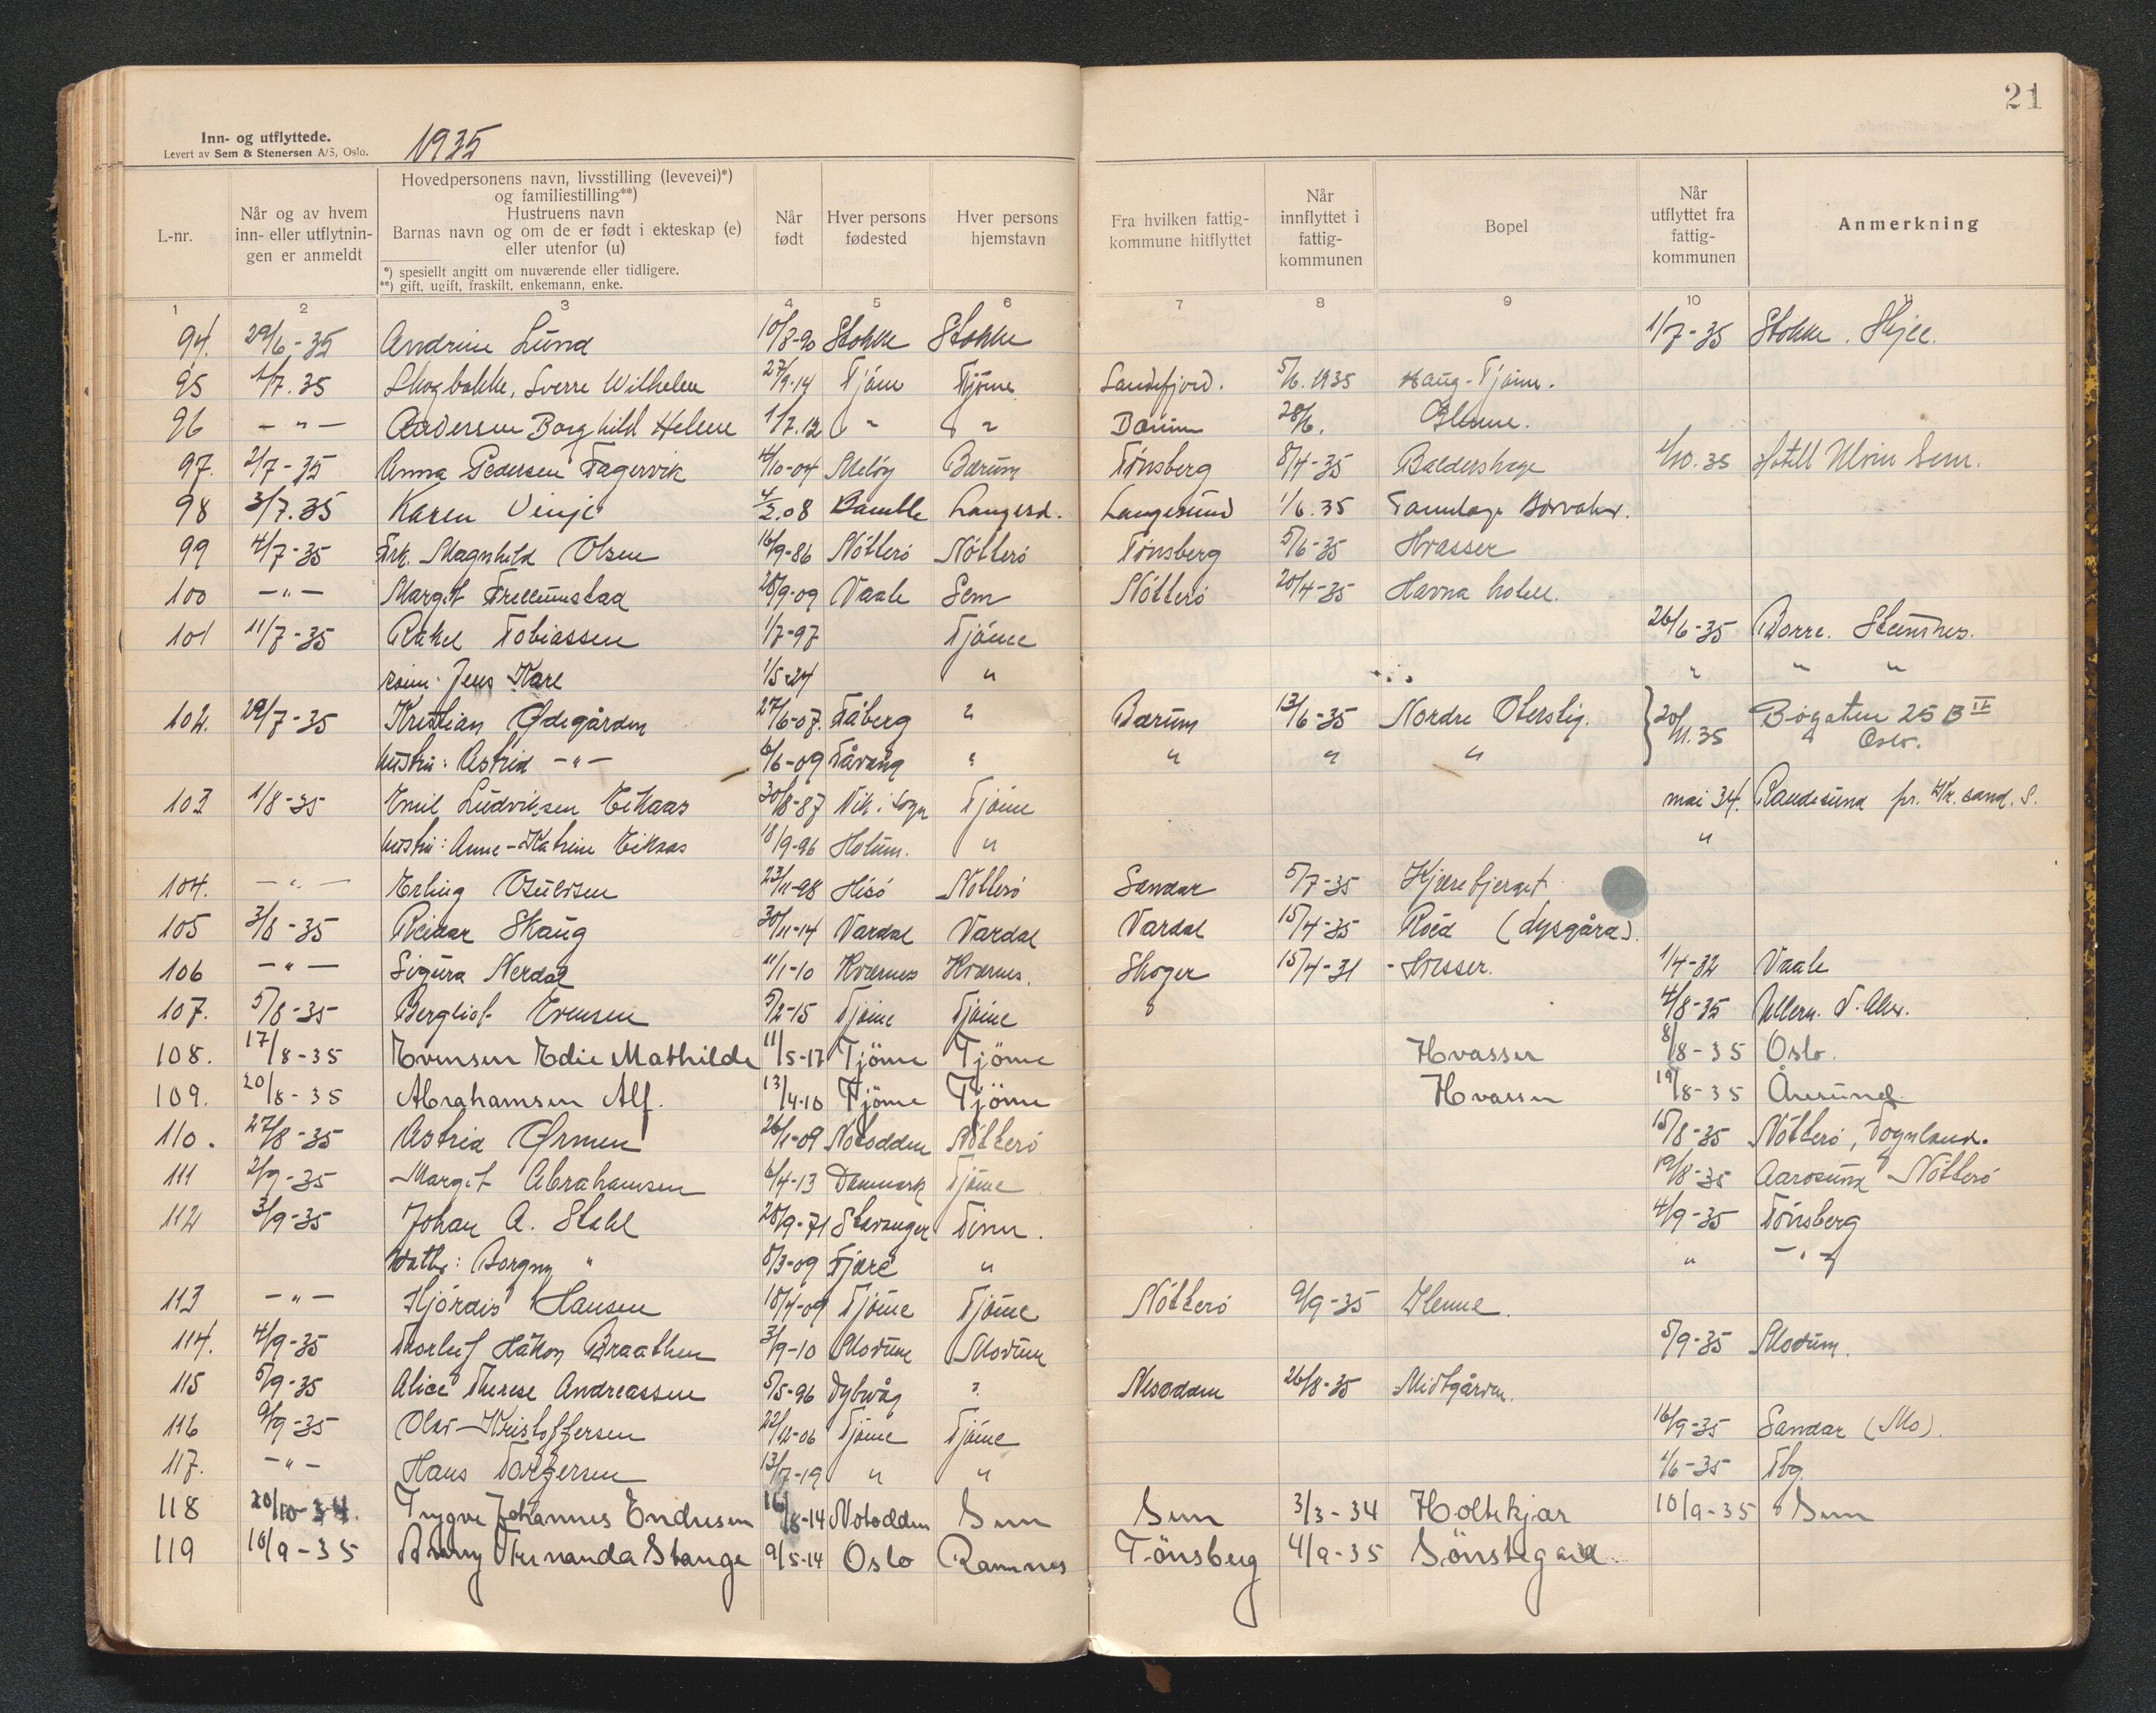 21
Inn- og utflyttede.
Levert av Sem & Stenersen A/S, Oslo.
1935
L-nr.
Når og av hvem inn- eller utflytnin-gen er anmeldt
Hovedpersonens navn, livsstilling (levevei)*)
og familiestilling**)
Hustruens navn
Barnas navn og om de er født i ekteskap (e)
eller utenfor (u)
*) spesiellt angitt om nuværende eller tidligere.
**) gift, ugift, fraskilt, enkemann, enke.
Når født
Hver persons fødested
Hver persons hjemstavn
Fra hvilken fattig-kommune hitflyttet
Når innflyttet i fattig-kommunen
Bopel
Når utflyttet fra fattig-kommunen
Anmerkning
1 2 3 4 5 6 7 8 9 10 11
94. 29/6-35 Andrine Lund 10/8-90 Stokke Stokke 1/7-35 Stokke.
95 1/7.35 Sverre Wilhelm 27/9-14 Tjöme Tjöme Sandefjord. 5/6.1935 Haug-Tjöme.
96 -"- Andersen Borghild Helene 1/7.12 " " Bærum 28/6. Glenne.
97. 2/7-35 Anna Pedersen Fagervik 4/10-04 Meløy Bærum Tönsberg 8/4-35 Baldershage 1/10.35 Hotell Sem.
98 3/7.35 Karen Vinje 4/2.08 Bamble Langesd. Langesund 1/6.35
99 4/7-35 Frk. Magnhild Olsen 16/9-86 Nötterö Nötterö Tönsberg 5/6-35 Hvasser
100 -"- Margit 28/9-09 Vaale Sem Nötterö 20/4-35 Havna hotell.
101 11/7-35 Rakel Tobiassen 1/7-97 Tjöme 26/6-35 Borre.
Jens Kare 1/5-24 " " " "
102. 29/7-35 Kristian Ødegården 27/6-07. Fåberg " Bærum 13/6-35 Nordre 20/11.35 Bögaten 25 B IV
Oslo.
hustru: Astrid -"- 6/6-09 Fåvang " " " "
103 1/8-35 Emil Ludviksen Eikaas 30/8-87 Vik i Sogn Tjöme mai 34. Randesund pr. Kr.sand. S.
hustru: Anne-Katrine Eikaas 18/9-96 Holum. " "
104. -"- Erling 23/11-98 Hisö Nötterö Sandar 5/7-35
105 3/8-35 Reidar Skaug 30/11-14 Vardal Vardal Vardal 15/4-35 Röed (dysgård).
106 -"- Sigurd Nerdal 11/1-10 Kværnes Kværnes. Skoger 15/4-31 1/4-32 Vaale
107. 5/8-35 Bergliot Evensen 5/2-15 Tjöme Tjöme 4/8-35 Ullern.
108. 17/8-35 Evensen Edie Mathilde 11/5-17 Tjöme Tjöme Hvasser 8/8-35 Oslo.
109. 20/8-35 Abrahamsen Alf. 13/4-10 Tjöme Tjöme Hvasser 19/8-35 Årösund
110. 27/8-35 Astrid Ørmen 26/1-09 Notodden Nötterö 15/8-35 Nötterö,
111 2/9-35 Margit Abrahamsen 6/4-13 Danmark Tjöme 19/8-35 Aarosund Nötterö
112 3/9-35 Johan A. Stahl 28/9-71 Stavanger 4/9-35 Tönsberg
Datter: Borgny " 8/3-09 Fjære " " -"-
113 -"- Hjördis Hansen 18/4-09 Tjöme Tjöme Nötterö 9/9-35 Glenne.
114. 4/9-35 Thorleif Håkon Braathen 3/9-10 Modum Modum 5/9-35 Modum.
115 5/9-35 Alice Therese Andreassen 5/5-96 Dybvåg " Nesodden 26/8-35 Midtgården.
116 9/9-35 Olav Kristoffersen 22/12-06 Tjöme Tjöme 16/9-35 Sandar (Mo).
117. -"- Hans Torgersen 13/7-19 " " 1/6-35 Tbg.
118 20/10-34. Trygve Johannes Endresen 16/8-14 Notodden Sem Sem 3/3-34 Holtekjær 10/9-35 Sem
119 10/9-35 Fernanda Stange 9/5-14 Oslo Ramnes Tönsberg 4/9-35 Sönstegård.